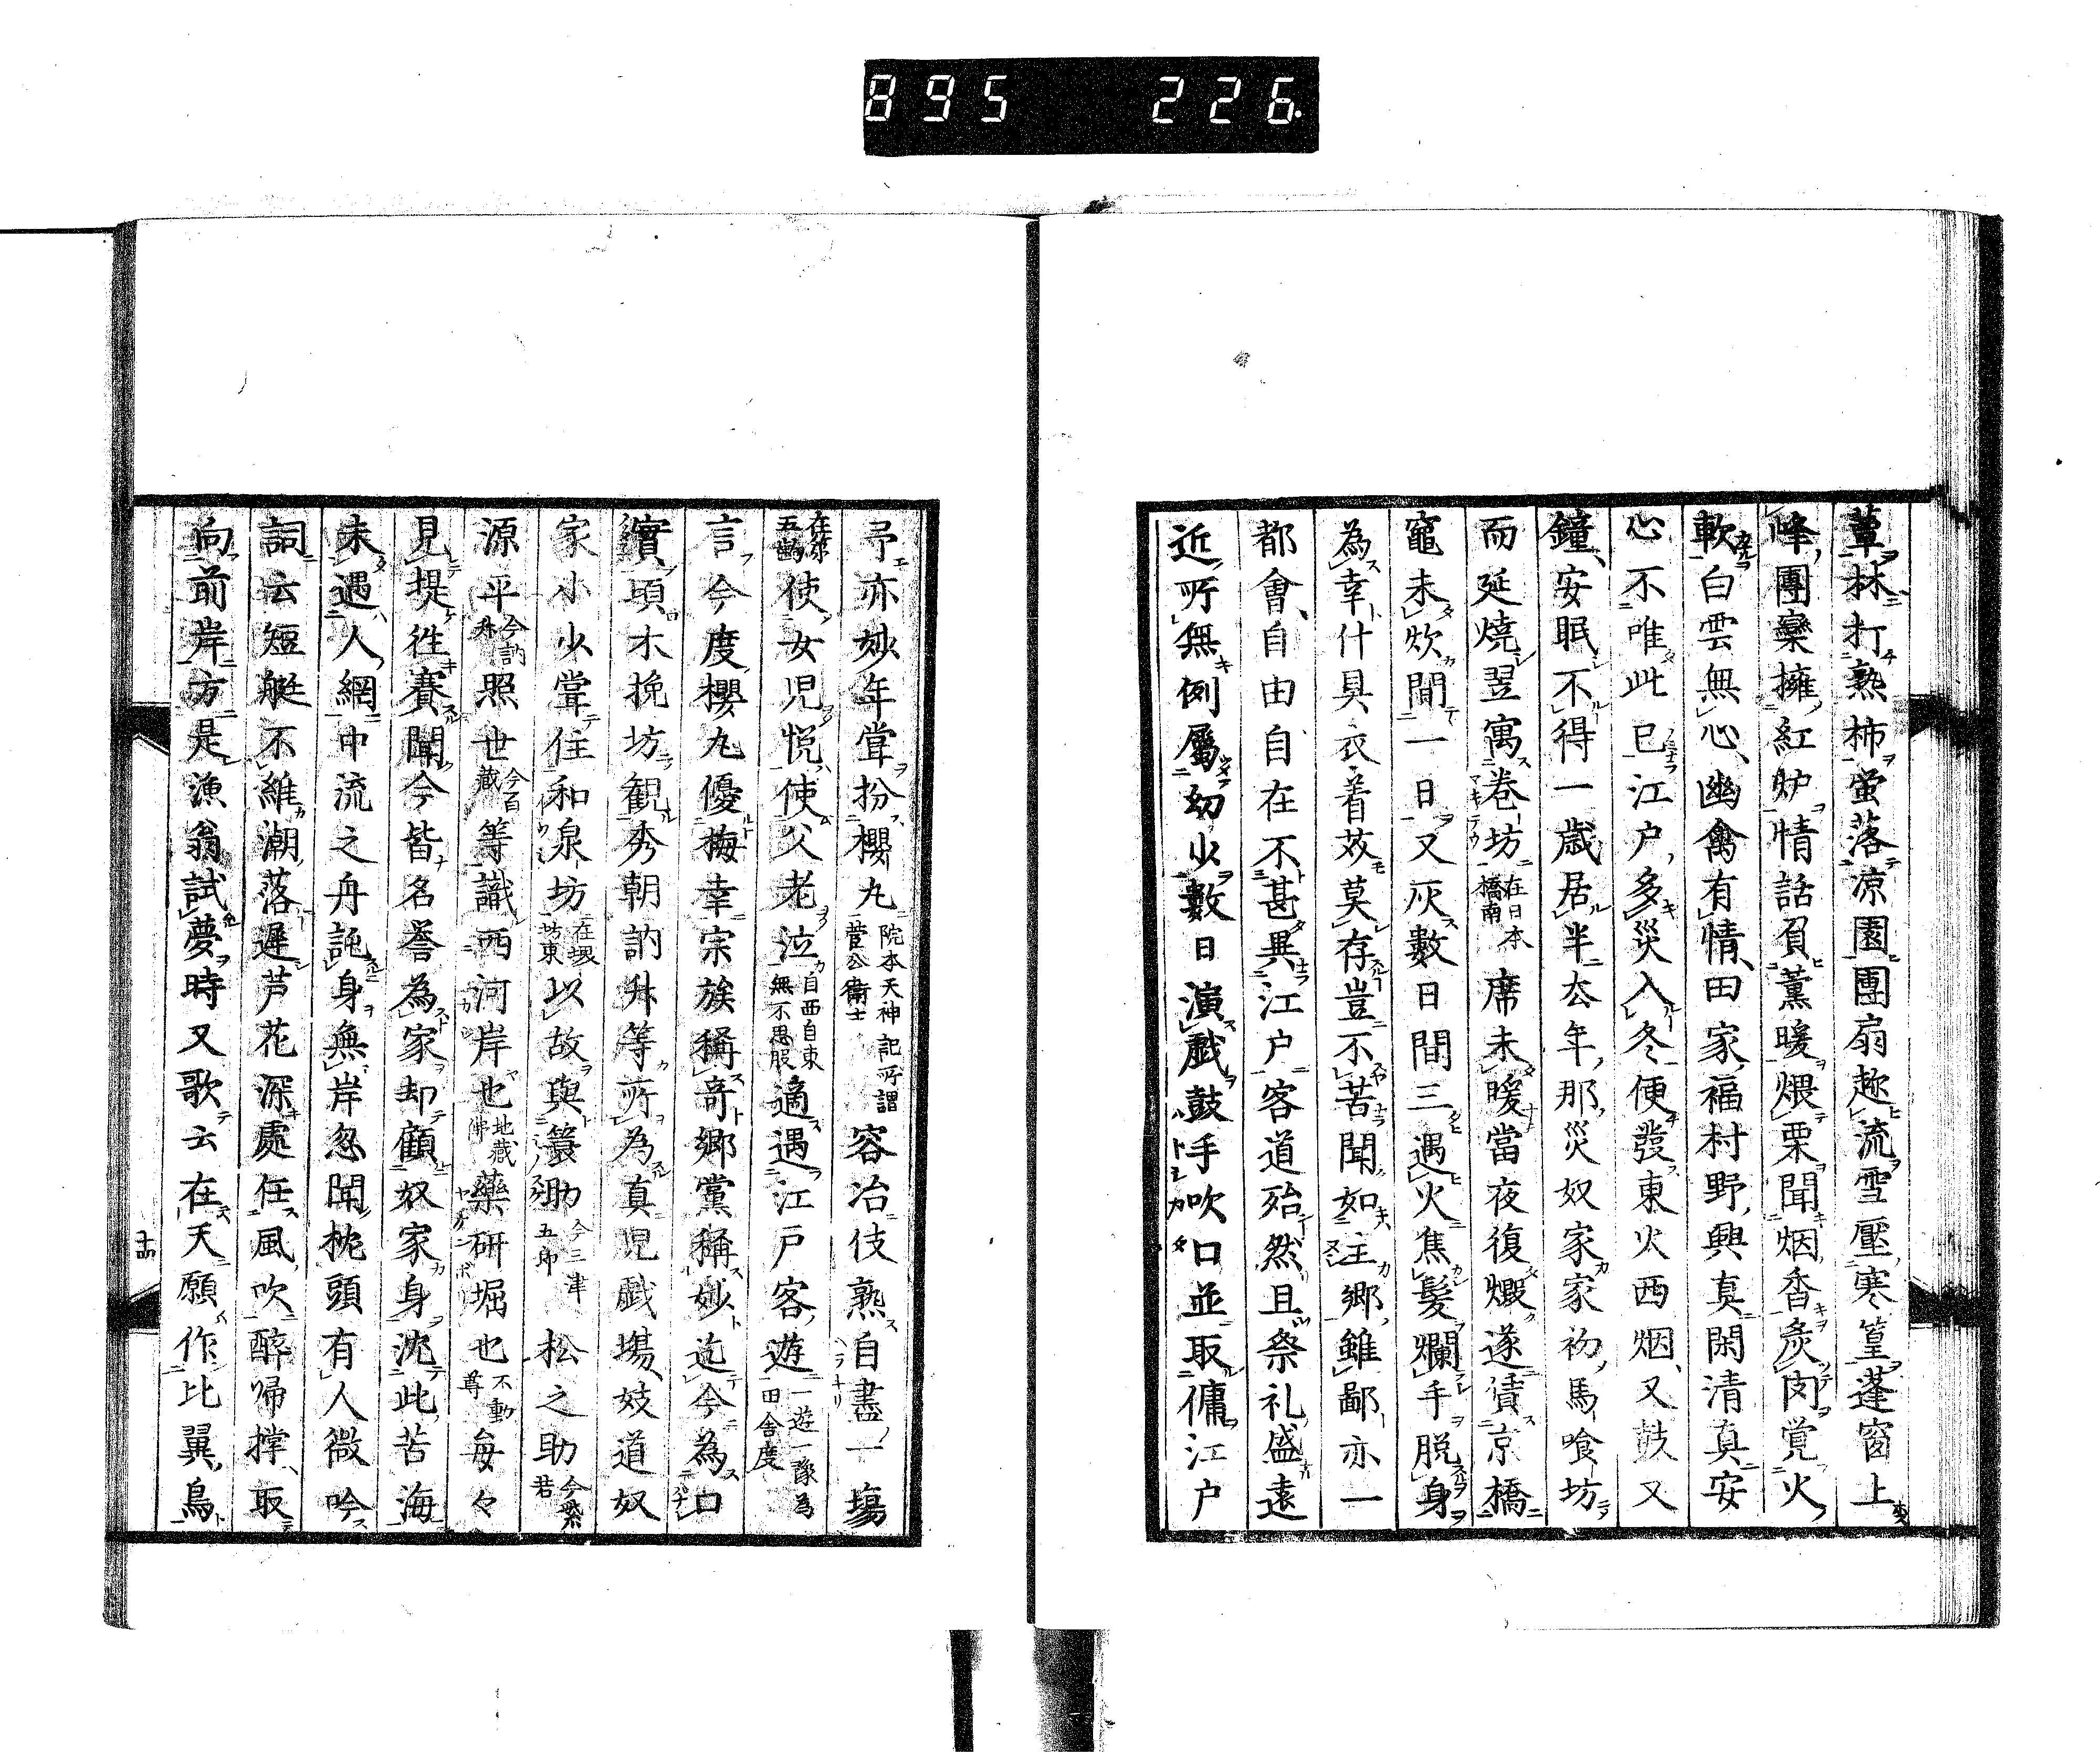 895 226
蕈林打熟柿蛍落凉園團扇趂流雪壓寒篁蓬窗上
峰團欒擁紅炉情話負薫暖煨栗聞烟香炙肉覚火
軟白雲無心幽禽有情田家福村野興真閑清真安
心不唯此已江户多災入冬便發東火西烟又鼓又
鐘安眠不得一歳居半厺年那災奴家家初馬喰坊
而延燒翌寓巻坊在日本橋南席未暖當夜復燬遂僓京橋
竈未炊間一日又灰數日間三遇火焦髮爛手脱身
為幸什具衣着茲莫存豈不苦聞如主郷雖鄙亦一
都會自由自在不甚異江户客道殆然且祭礼盛遠
近所無例屬幼少數日演戯鼓手吹口並取傭江户
予亦妙年嘗扮櫻丸院本天神記所謂菅公衛士容冶伎熟自盡一場
在第五齣使女児悦使父老泣自西自東無不思服適遇江戸客遊一遊一豫為田舎度
言今度櫻丸優梅幸宗族稱奇郷黨稱妙迄今為口
實頃木挽坊観秀朝訥舛等所為真児戯場妓道奴
家小少嘗住和泉坊在堺坊東以故與簑助今三津五郎松之助今紫若
源平今訥舛照世今百蔵等識西河岸也地蔵佛藥研堀也不動尊毎々
見提徃賽聞今皆名誉為家却顧奴家身沈此苦海
未遇人網中流之舟詑身無岸忽聞枕頭有人微吟
詞云短艇不維潮落遲芦花深處任風吹醉帰撑取
向前岸方是漁翁試夢時又歌云在天願作比翼鳥
十四